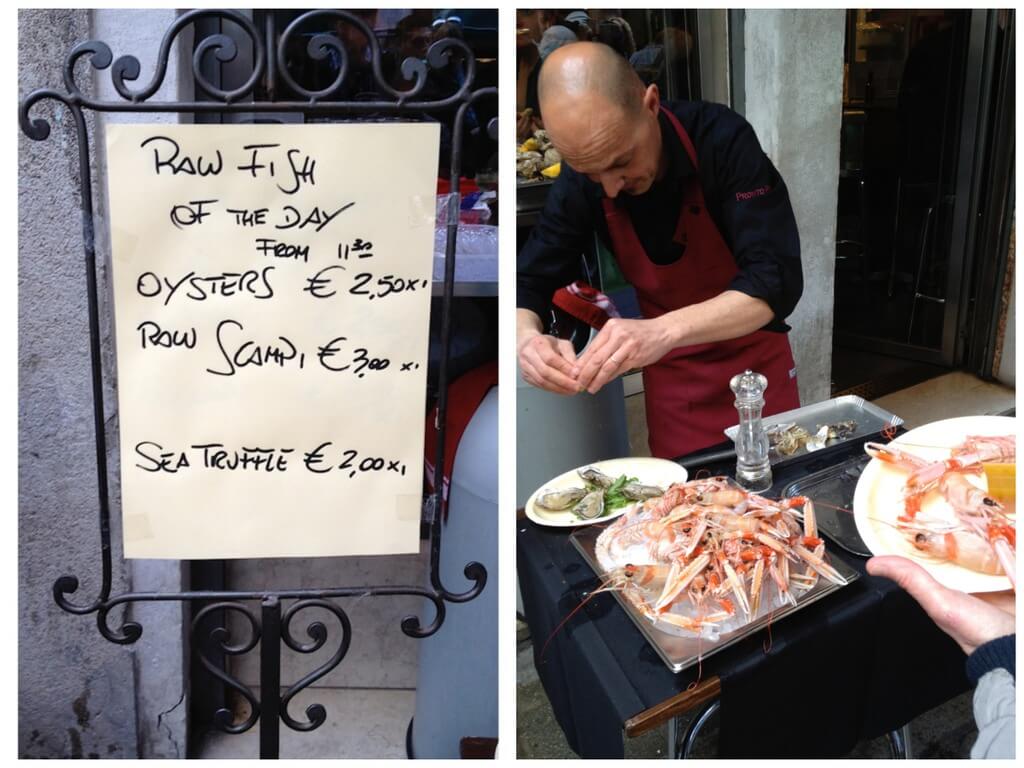 RAW FISH
OF THE DAY
FROM 11 30
OYSTERS € 2,50 x1
RAW SCAMPI €3,00 x1
SEA TRUFFLE € 2,00 x1
PRONTO